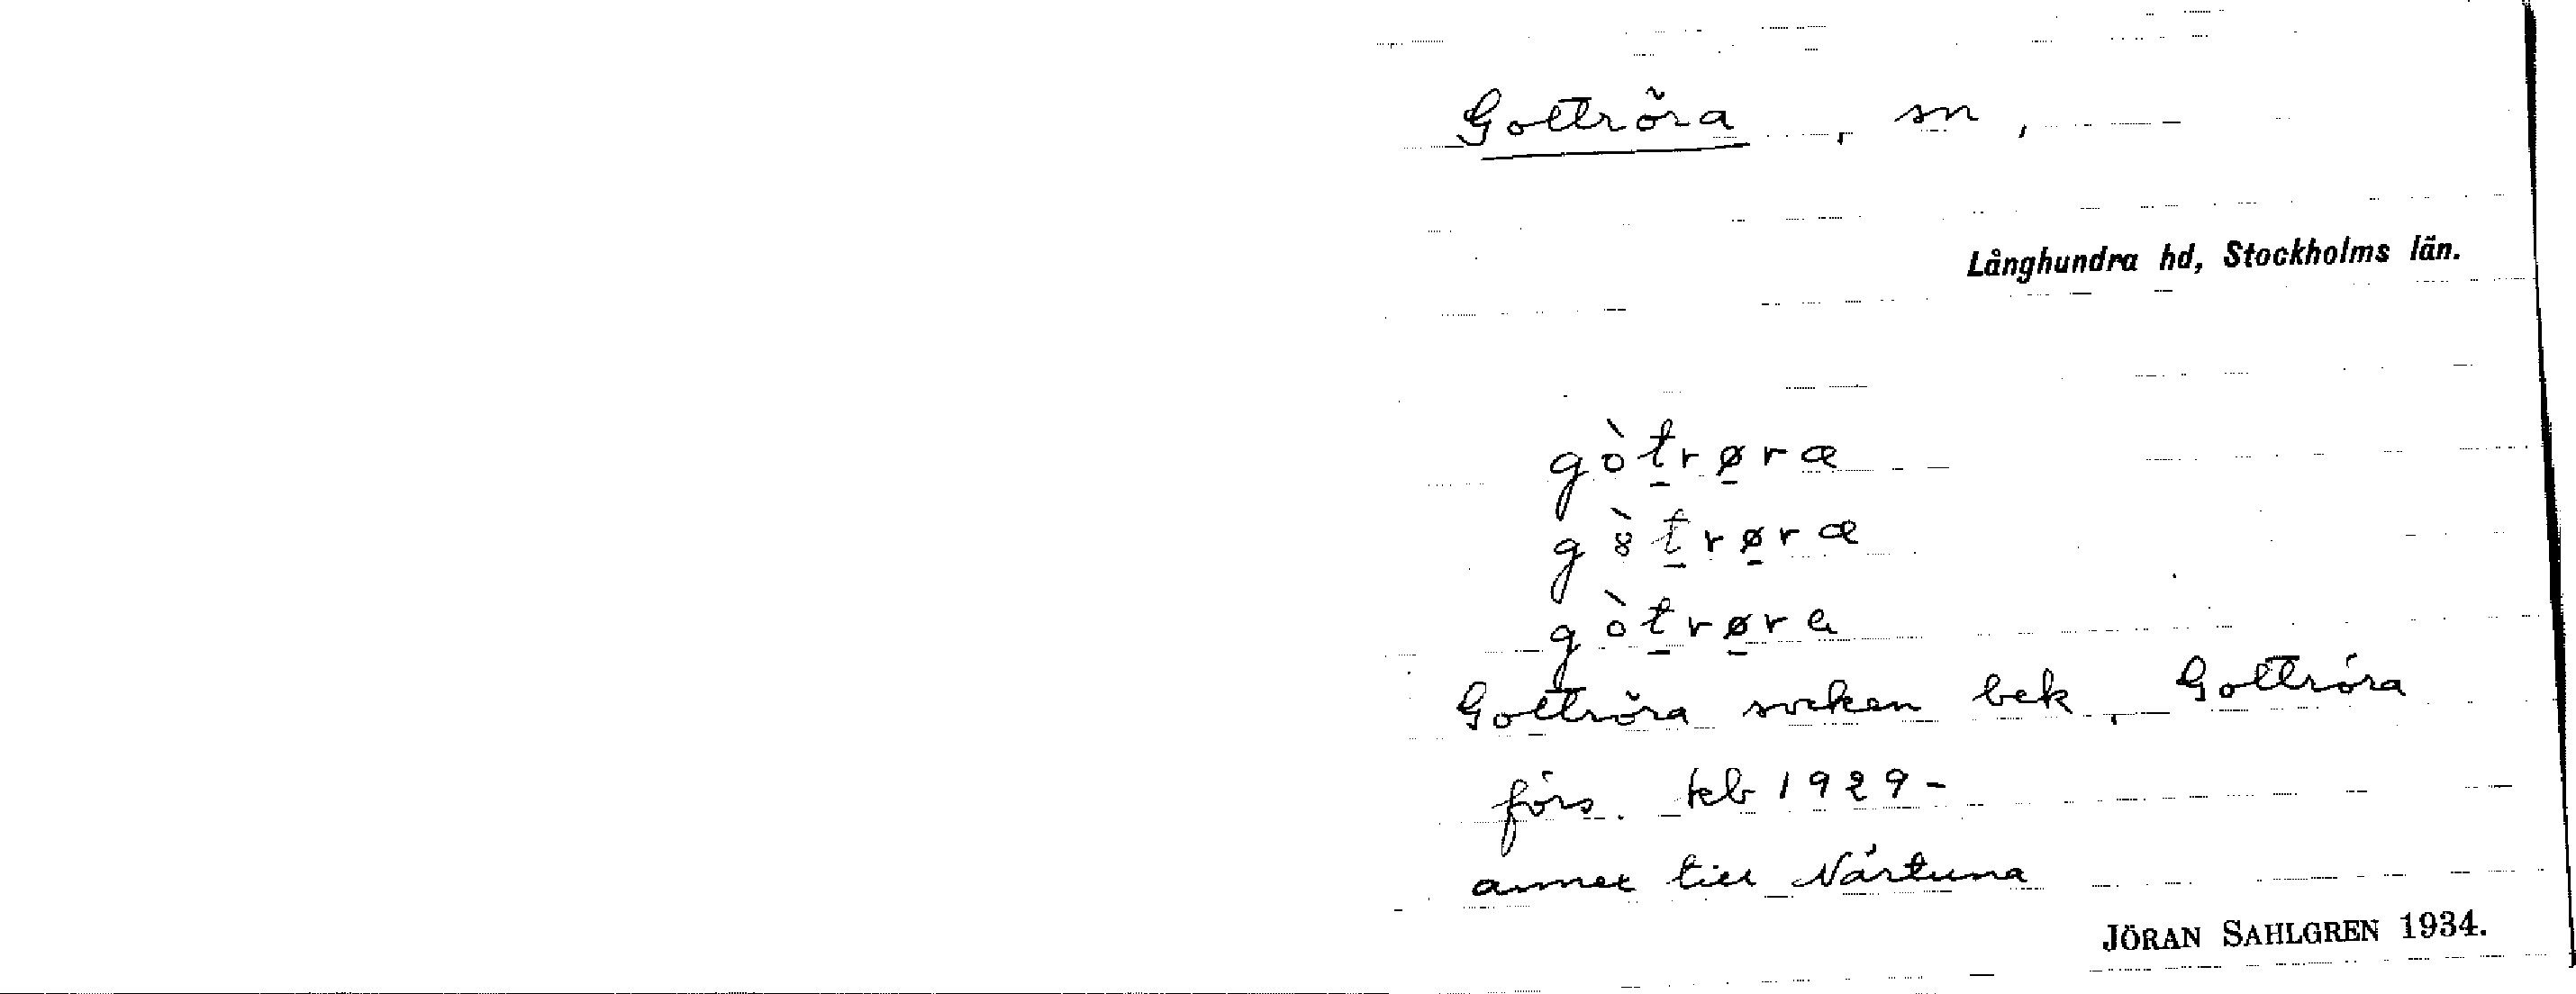 Gottröra, sn,
Långhundra hd, Stockholms län.
gòt̲rø̲ra
g8̀t̲rø̲ra
gòt̲rø̲ra
Gottröra socken bek, Gottröra
förs. kb 1929-
annex till Närtuna
JÖRAN SAHLGREN 1934.